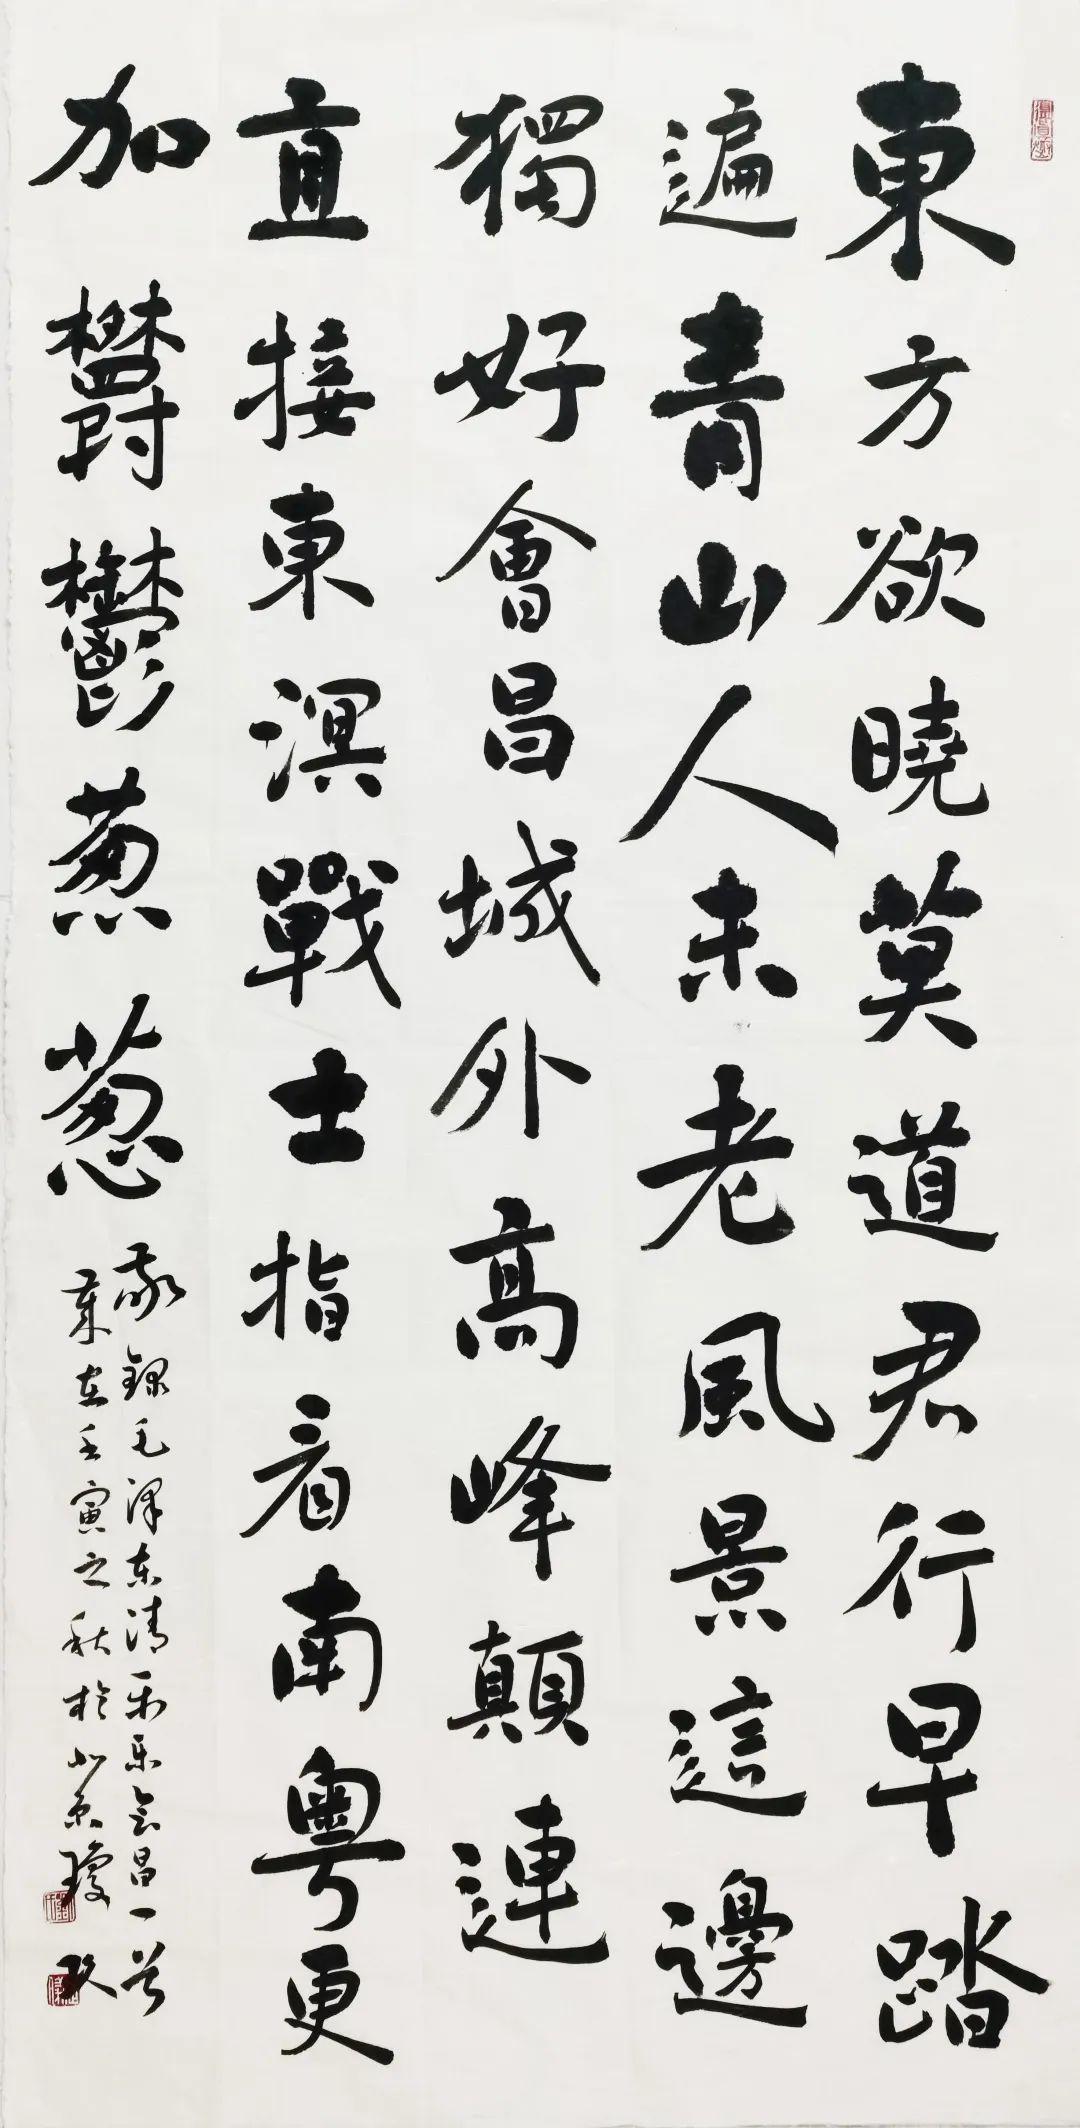 東方欲曉莫道君行早踏
遍青山人未老風景這邊
獨好會昌城外高峰顛連
直接東溟戰士指看南粤更
加欝鬱葱葱
敬録毛泽东清平乐會昌一首
歲在壬寅之秋於北京瓊玖